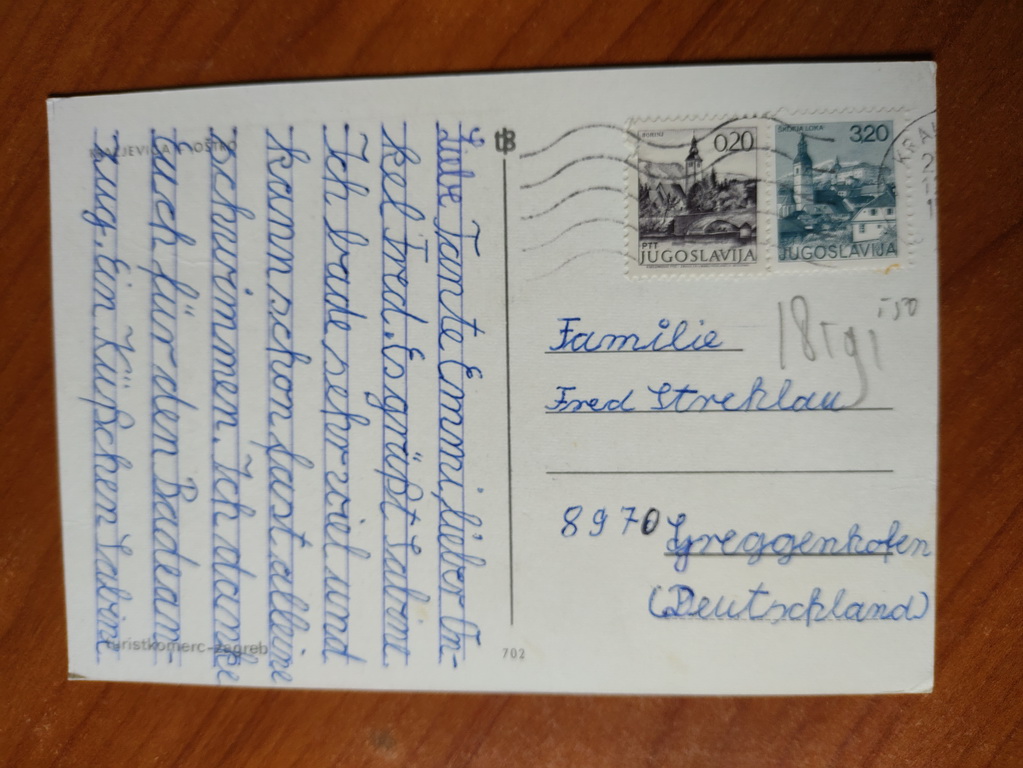 KRALJEVICA - OŠTRO
Liebe Tante Emmi, lieber On-
kel Fred. Es grüßt Sabine
Ich bade sehr viel und
kann schon fast alleine
schwimmen. Ich danke
Euch für den Badean
zug. Ein Küßchen Sabin
turistkomerc-zagreb
702
0,20
PTT
JUGOSLAVIJA
ŠKOFJA LOKA
3,20
JUGOSLAVIJA
Familie
Fred Streklau
8970 Greggenhofen
(Deutschland)